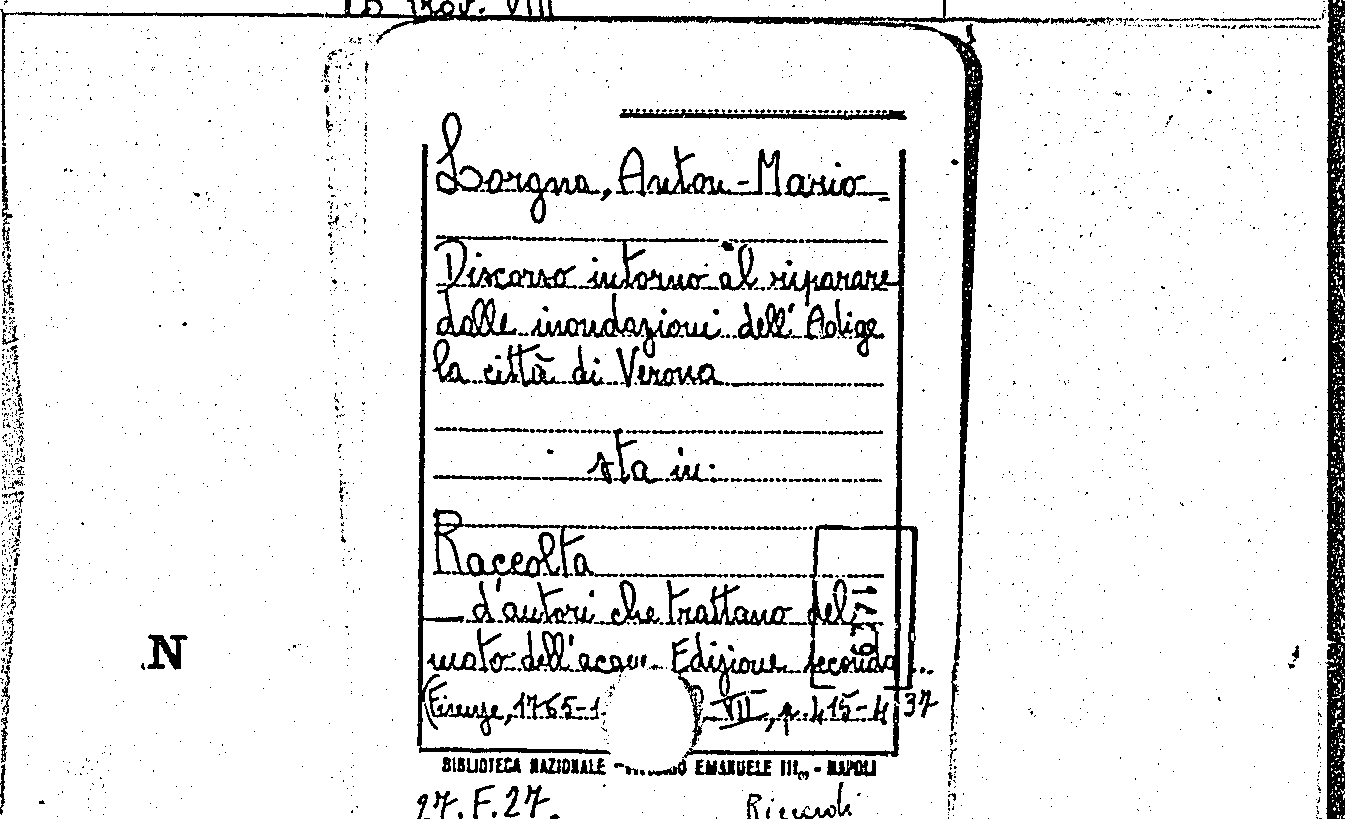 Lorgna, Anton-Mario
Discorso intorno al riparare
dalle inondazioni dell' Adige
la città di Verona
sta in:
Raccolta
d'autori che trattano del
moto dell'acque. Edizione seconda...
(Firenze, 1765-1 VII, p. 415-437
N
BIBLIOTECA NAZIONALE - EMANUELE III - NAPOLI
27.F.27. Riccardi